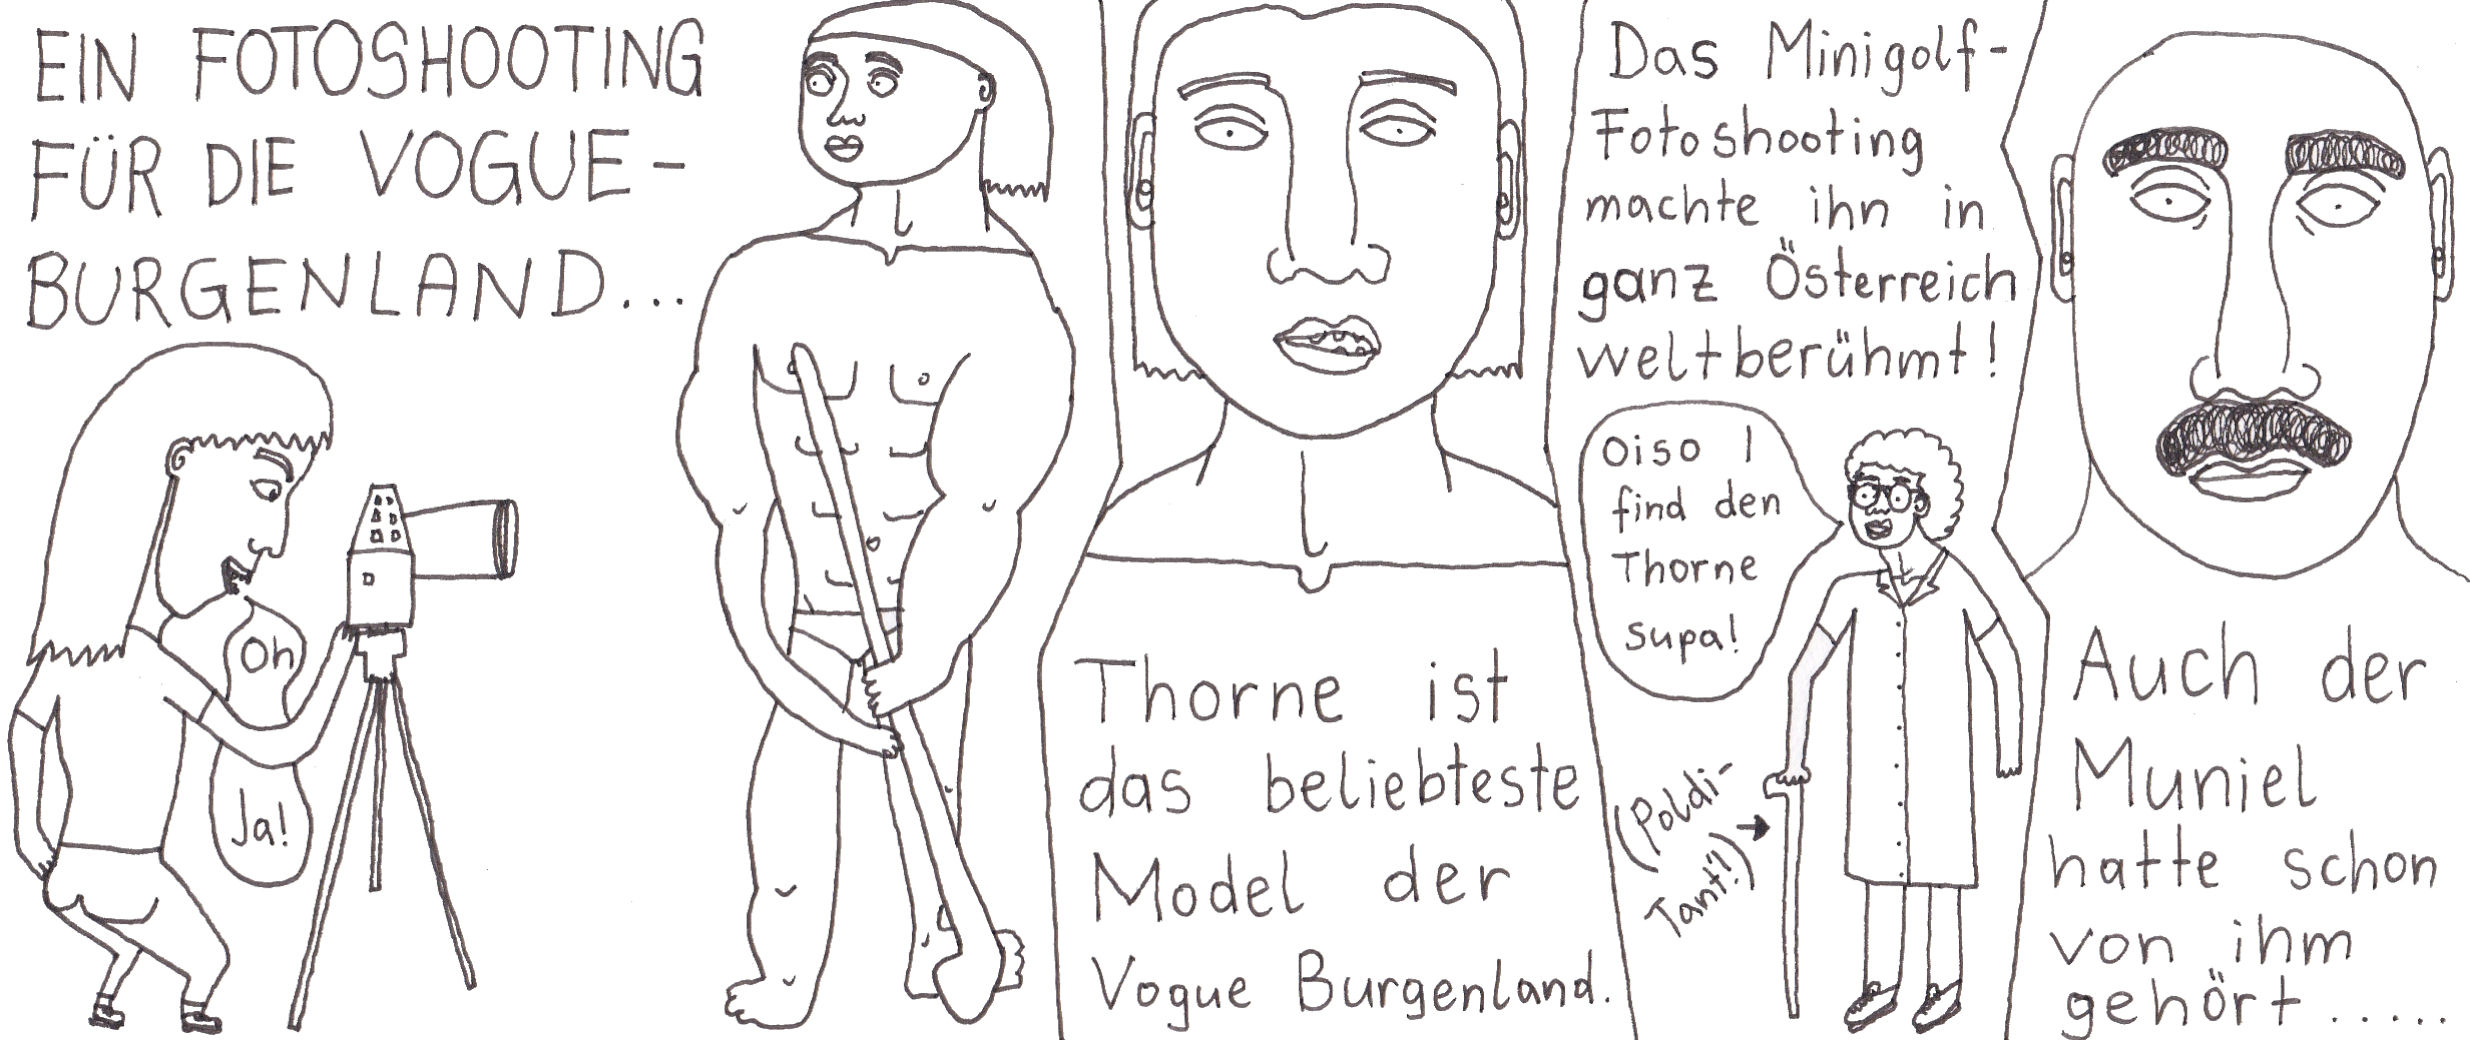 EIN FOTOSHOOTING
FÜR DIE VOGUE-
BURGENLAND...
Oh
Ja!
Thorne ist
das beliebteste
Model der
Vogue Burgenland.
Das Minigolf-
Fotoshooting
machte ihn in
ganz Österreich
weltberühmt!
Oiso I
find den
Thorne
supa!
(Poldi-
Tant!)
Auch der
Muniel
hatte schon
von ihm
gehört.....